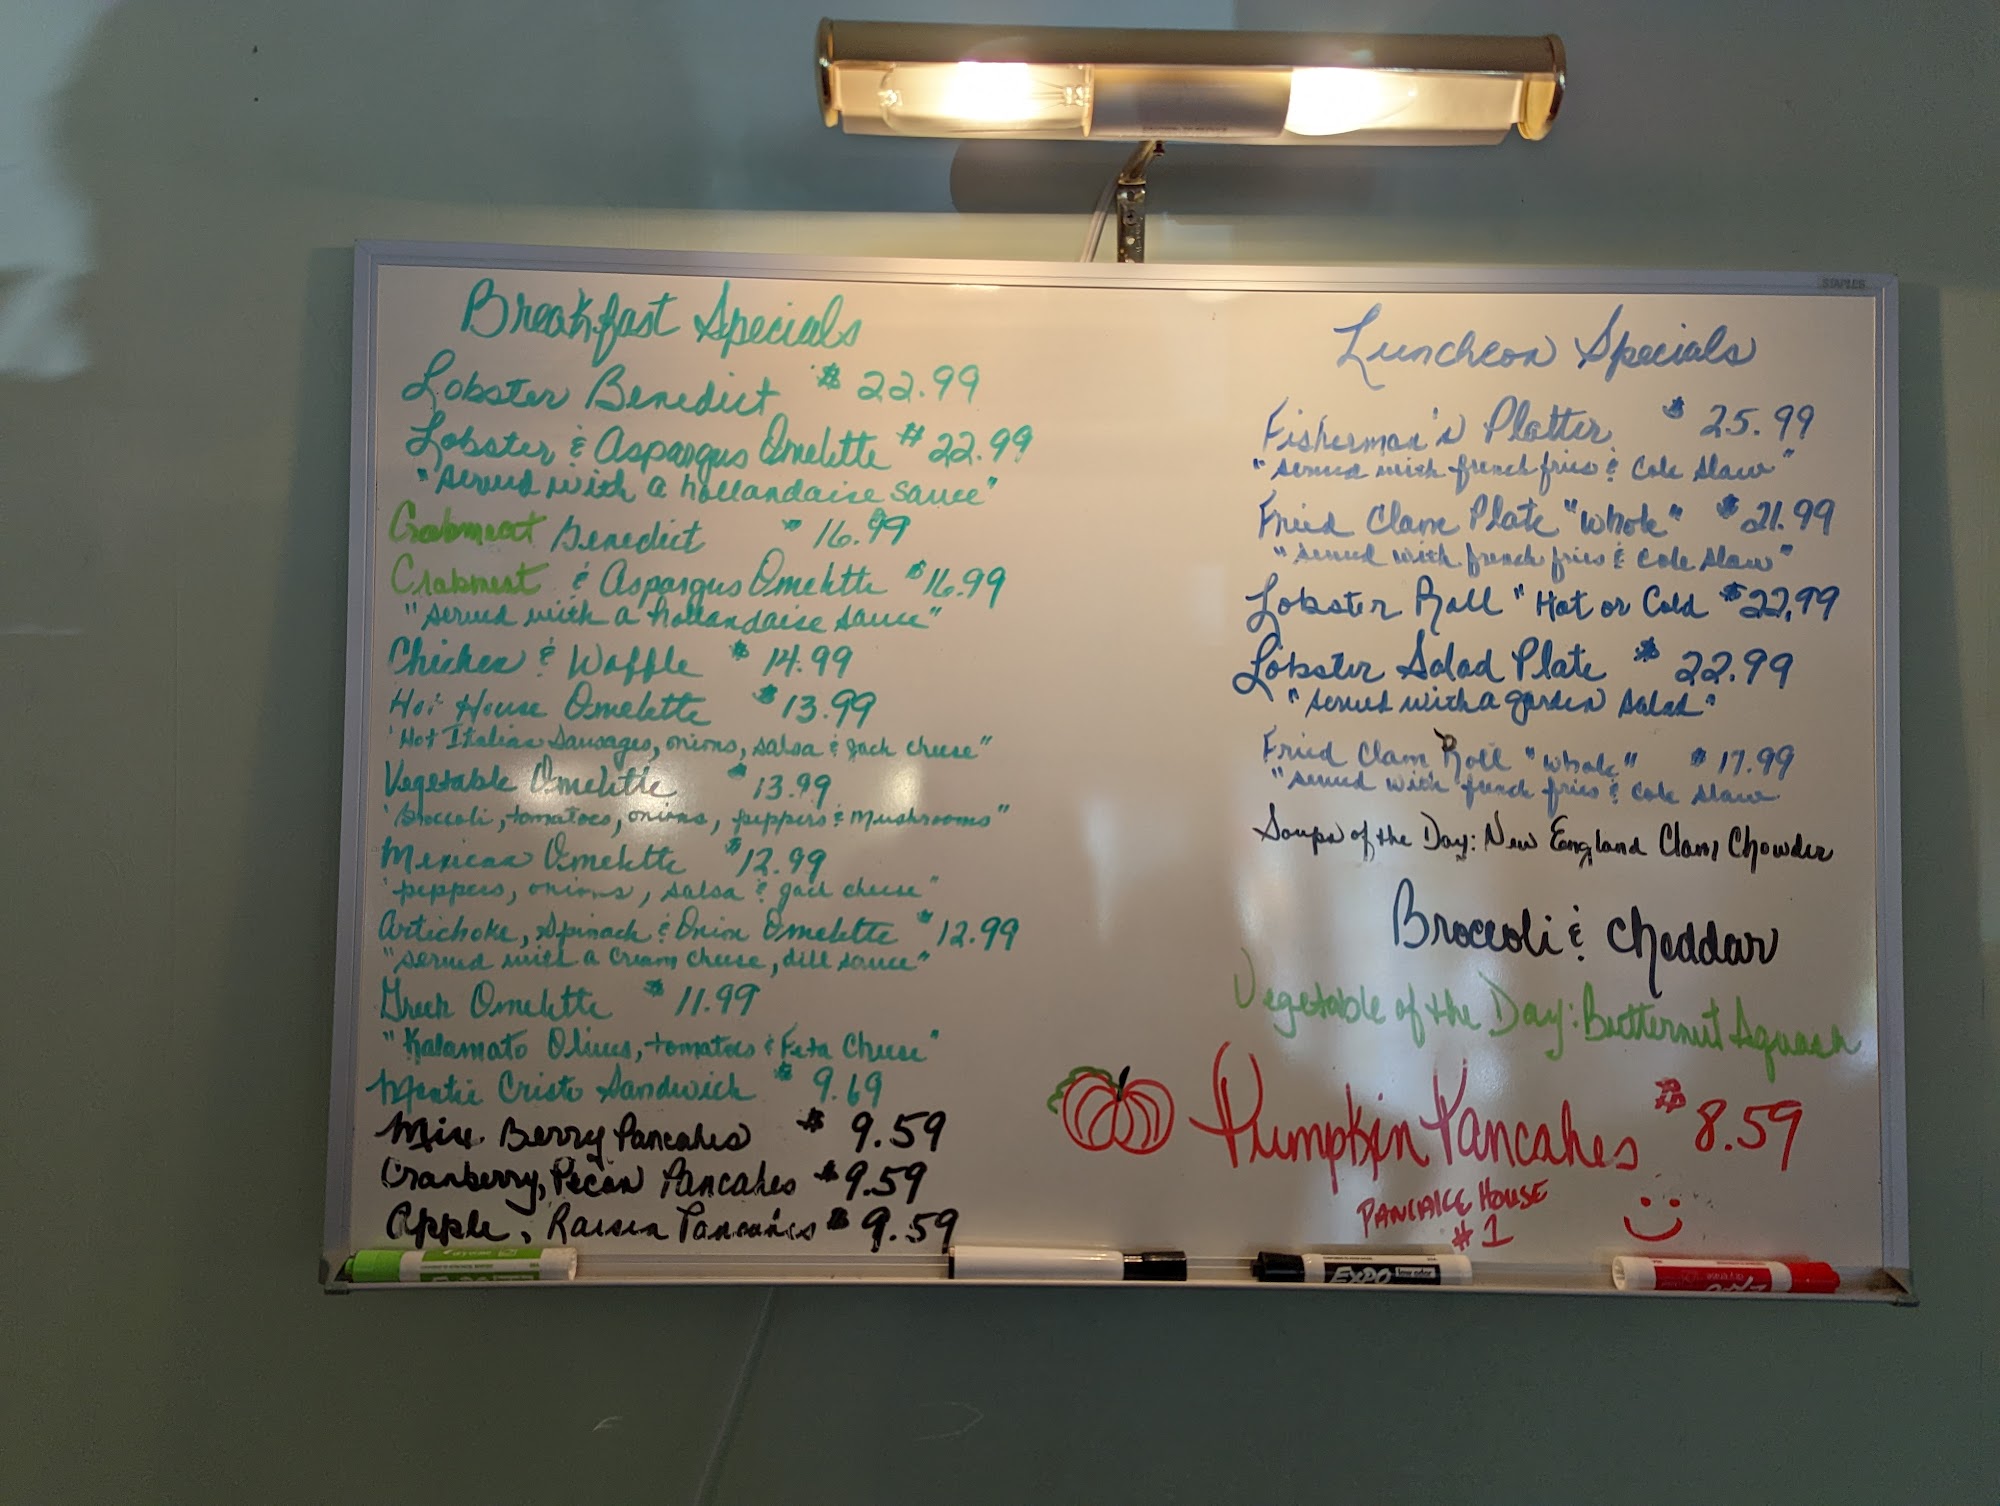 Breakfast Specials
Lobster Benedict $22.99
Lobster & Aspargus Omelette $22.99
"served with a hollandaise sauce"
Crabmeat Benedict $16.99
Crabmeat & Aspargus Omelette $16.99
"served with a hollandaise sauce"
Chicken & Waffle $14.99
Hot House Omelette $13.99
"Hot Italian Sausages, onions, salsa & jack cheese"
Vegetable Omelette $13.99
"Broccoli, tomatoes, onions, peppers & mushrooms"
Mexican Omelette $12.99
"peppers, onions, salsa & jack cheese"
Artichoke, Spinach & Onion Omelette $12.99
"served with a cream cheese, dill sauce"
Greek Omelette $11.99
"Kalamato Olives, tomatoes & Feta Cheese"
Monte Cristo Sandwich $9.69
Mix Berry Pancakes $9.59
Cranberry, Pecan Pancakes $9.59
Apple, Raisin Pancakes $9.59
Luncheon Specials
Fisherman's Platter $25.99
"served with french fries & Cole slaw"
Fried Clam Plate "Whole" $21.99
"served with french fries & Cole slaw"
Lobster Roll "Hot or Cold $22.99
Lobster Salad Plate $22.99
"served with a garden salad"
Fried Clam Roll "whole" $17.99
"served with french fries & Cole slaw
Soups of the Day: New England Clam Chowder
Broccoli & Cheddar
Vegetable of the Day: Butternut Squash
Pumpkin Pancakes $8.59
PANCAKE HOUSE
#1
STAPLES
EXPO
low odor